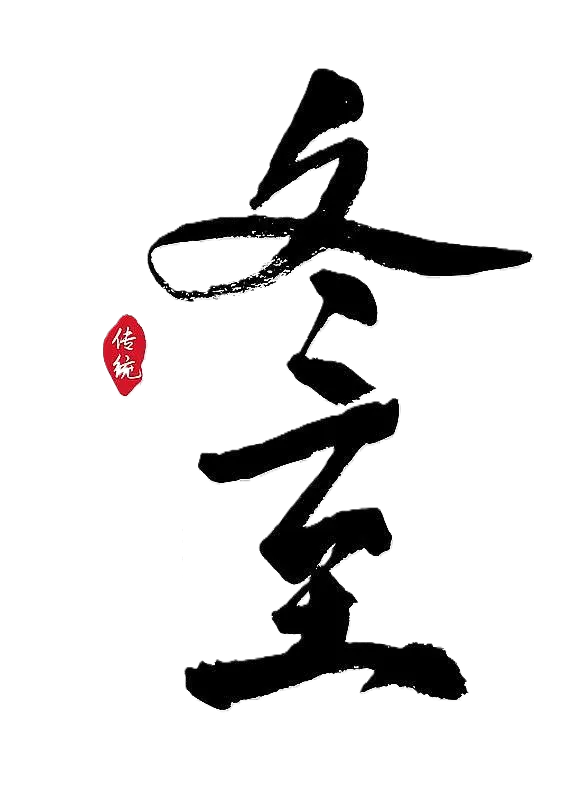 冬至
传统